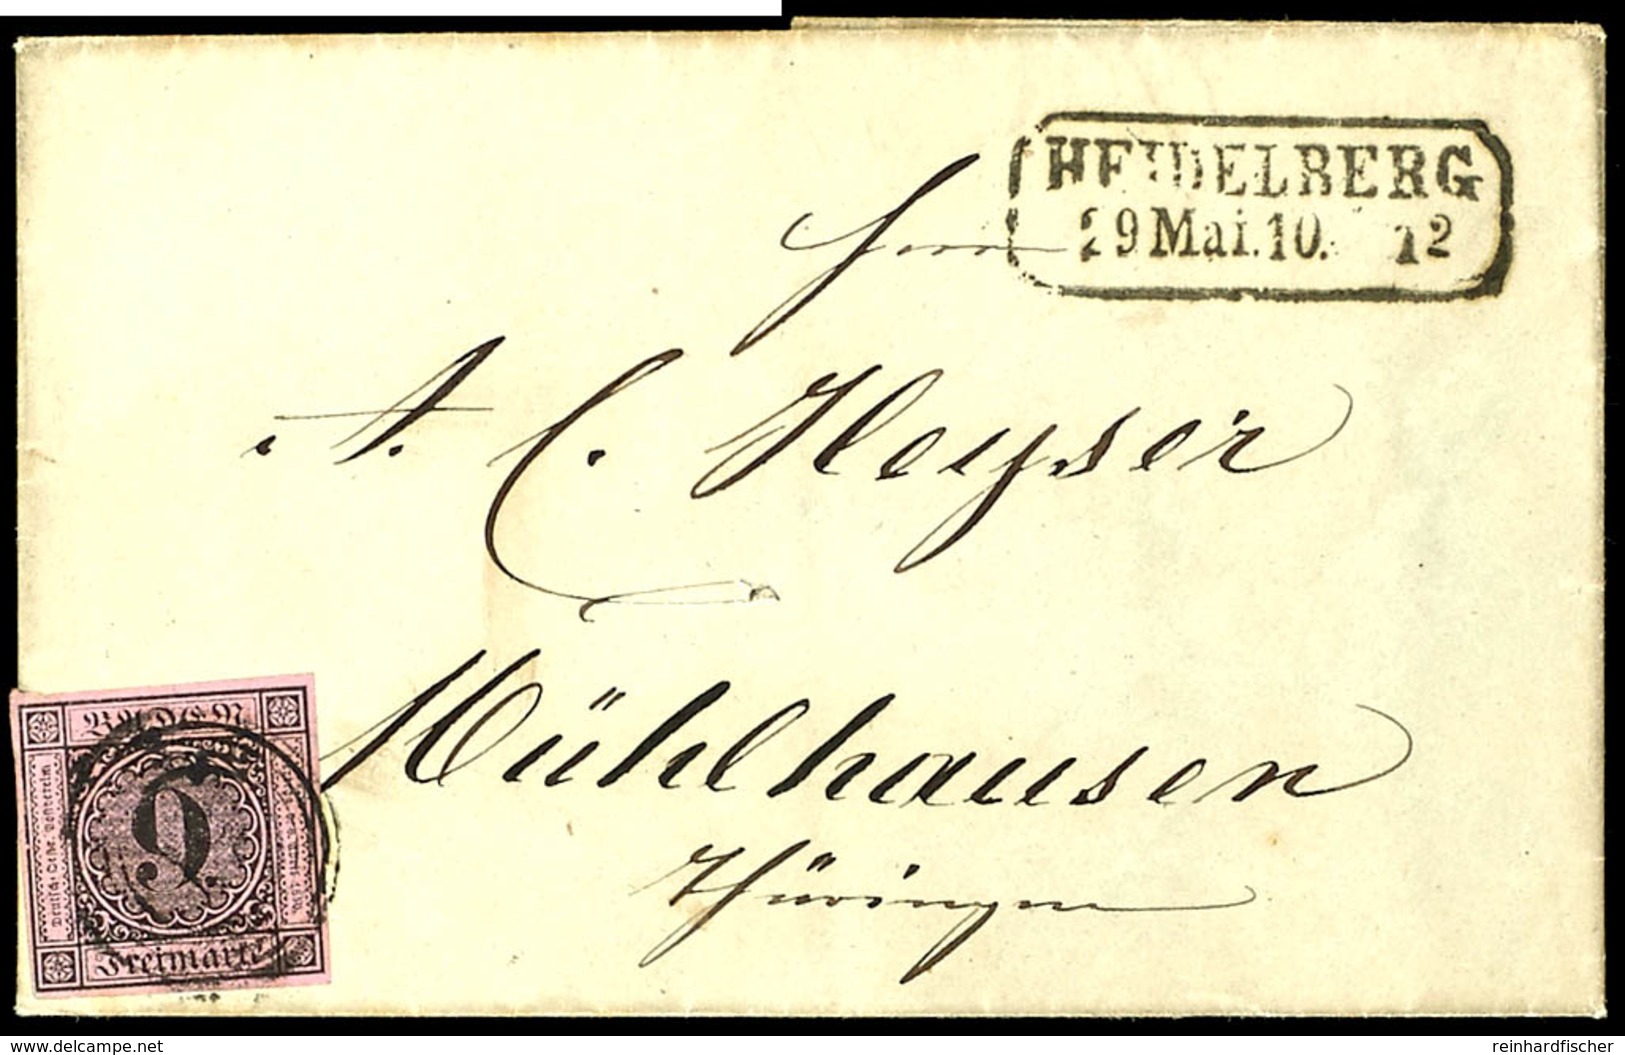 HEIDELBERG
29 Mai. 10. 12
Herrn
A. C. Heyser
Mühlhausen
Thüringen
BADEN
Deutsch. Oestr. Postverein
9
Freimarke
www.delcampe.net
reinhardfischer